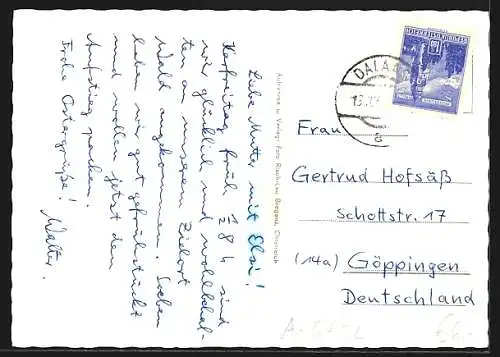 Liebe Mutter mit Elsi!
Karfreitag früh ½8 h sind
wir glücklich und wohlbehal-
ten an unserem Zielort
Wald angekommen. Soeben
haben wir gut gefrühstückt
und wollen jetzt den
Aufstieg packen.
Frohe Ostergrüße!
Walter.
Aufnahme u. Verlag: Foto Risch-Lau, Bregenz, Österreich
REPUBLIK ÖSTERREICH
DALAAS
a
Frau
Gertrud Hofsäß
Schottstr. 17
(14a) Göppingen
Deutschland